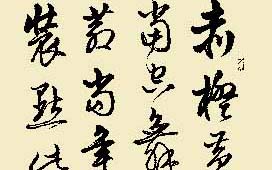 赤橙黄
当空舞
苍当年
装点此